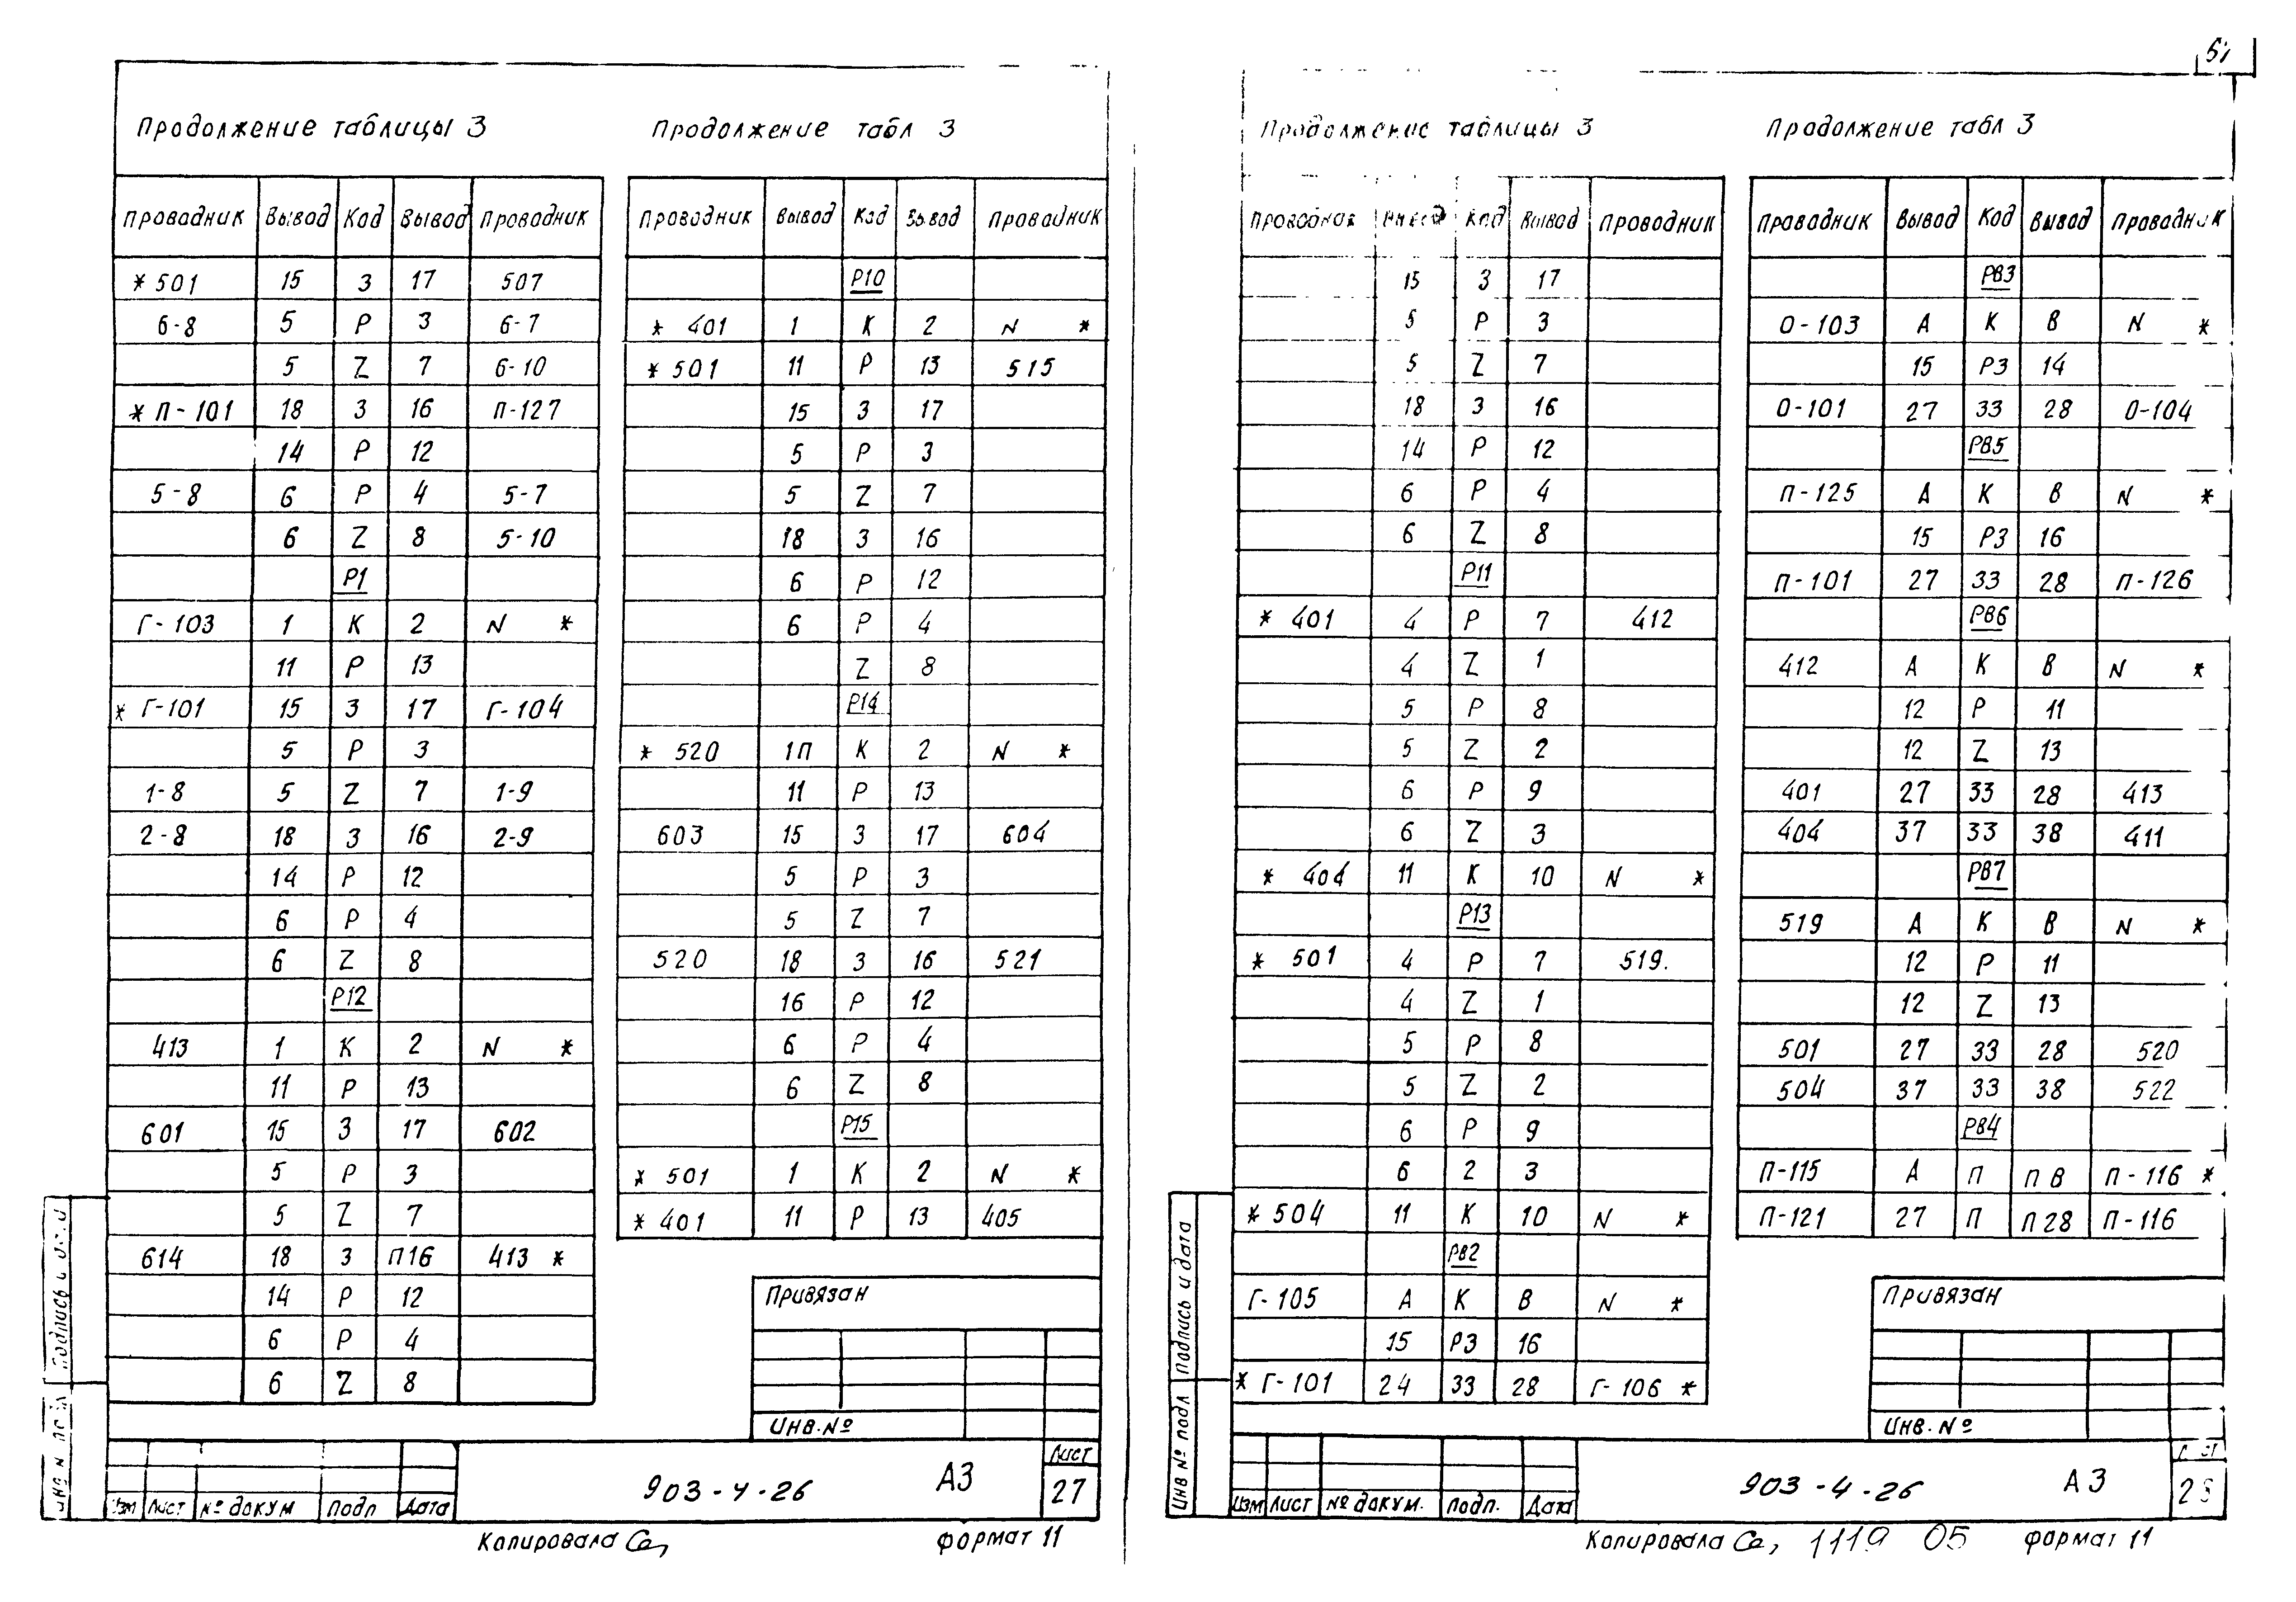 51
Продолжение таблицы 3
Проводник Вывод Код Вывод Проводник
* 501 15 З 17 507
6-8 5 Р 3 6-7
5 Z 7 6-10
* П-101 18 З 16 П-127
14 Р 12
5-8 6 Р 4 5-7
6 Z 8 5-10
Р1
Г-103 1 К 2 N *
11 Р 13
* Г-101 15 З 17 Г-104
5 Р 3
1-8 5 Z 7 1-9
2-8 18 З 16 2-9
14 Р 12
6 Р 4
6 Z 8
Р12
413 1 К 2 N *
11 Р 13
601 15 З 17 602
5 Р 3
5 Z 7
614 18 З П16 413 *
14 Р 12
6 Р 4
6 Z 8
Продолжение табл 3
Проводник Вывод Код Вывод Проводник
Р10
* 401 1 К 2 N *
* 501 11 Р 13 515
15 З 17
5 Р 3
5 Z 7
18 З 16
6 Р 12
6 Р 4
Z 8
Р14
* 520 1П К 2 N *
11 Р 13
603 15 З 17 604
5 Р 3
5 Z 7
520 18 З 16 521
16 Р 12
6 Р 4
6 Z 8
Р15
* 501 1 К 2 N *
* 401 11 Р 13 405
Привязан
Инв.№
Изм Лист № докум Подп Дата
903-4-26 А3
Лист
27
Копировала
Формат 11
Подпись и
Инв № подл
Продолжение таблицы 3
Проводник Вывод Код Вывод Проводник
15 З 17
5 Р 3
5 Z 7
18 З 16
14 Р 12
6 Р 4
6 Z 8
Р11
* 401 4 Р 7 412
4 Z 1
5 Р 8
5 Z 2
6 Р 9
6 Z 3
* 404 11 К 10 N *
Р13
* 501 4 Р 7 519.
4 Z 1
5 Р 8
5 Z 2
6 Р 9
6 2 3
* 504 11 К 10 N *
РВ2
Г-105 А К В N *
15 РЗ 16
* Г-101 24 33 28 Г-106 *
Продолжение табл 3
Проводник Вывод Код Вывод Проводник
РВ3
О-103 А К В N *
15 РЗ 14
О-101 27 33 28 О-104
РВ5
П-125 А К В N *
15 РЗ 16
П-101 27 33 28 П-126
РВ6
412 А К В N *
12 Р 11
12 Z 13
401 27 33 28 413
404 37 33 38 411
РВ7
519 А К В N *
12 Р 11
12 Z 13
501 27 33 28 520
504 37 33 38 522
РВ4
П-115 А П П В П-116 *
П-121 27 П П28 П-116
Привязан
Инв.№
Изм Лист № докум. Подп. Дата
903-4-26 А3
28
Копировала
1119 05
Формат 11
Подпись и дата
Инв № подл